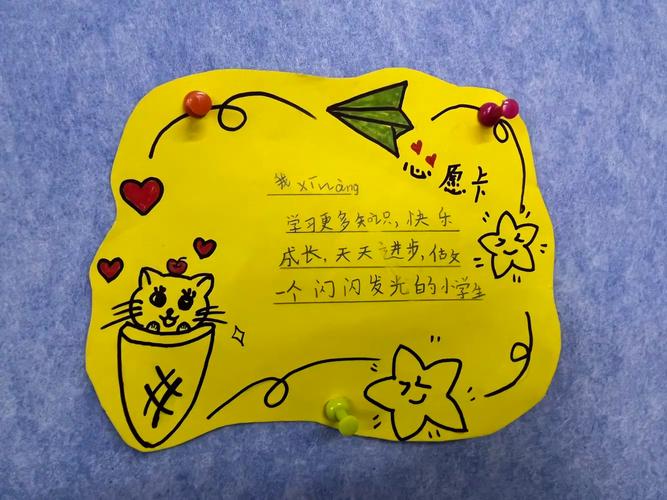 心愿卡
我 xīwàng
学习更多知识,快乐
成长,天天进步,做
一个闪闪发光的小学生